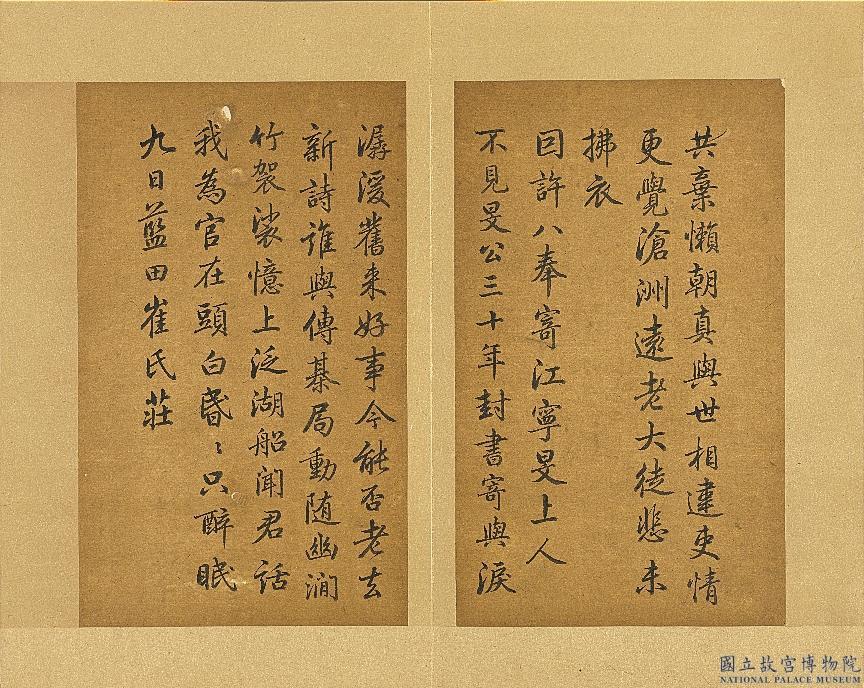 共棄懶朝真與世相違吏情
更覺滄洲遠老大徒悲未
拂衣
因許八奉寄江寧旻上人
不見旻公三十年封書寄與淚
潺湲舊來好事今能否老去
新詩誰與傳棊局動隨幽澗
竹袈裟憶上泛湖船聞君話
我為官在頭白昬〻只醉眠
九日藍田崔氏莊
國立故宮博物院
NATIONAL PALACE MUSEUM